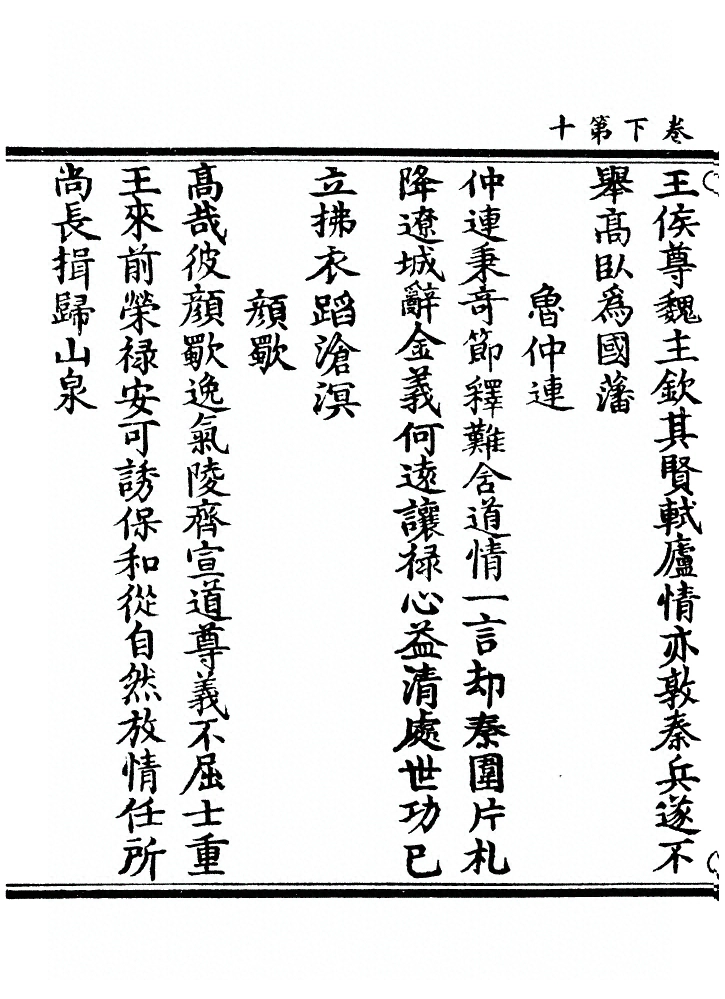 卷下第十
王侯尊魏主欽其賢軾廬情亦敦秦兵遂不
舉高臥爲國藩
魯仲連
仲連秉奇節釋難含道情一言却秦圍片札
降遼城辭金義何遠讓禄心益清處世功已
立拂衣蹈滄溟
顔歜
高哉彼顔歜逸氣陵齊宣道尊義不屈士重
王來前榮禄安可誘保和從自然放情任所
尚長揖歸山泉